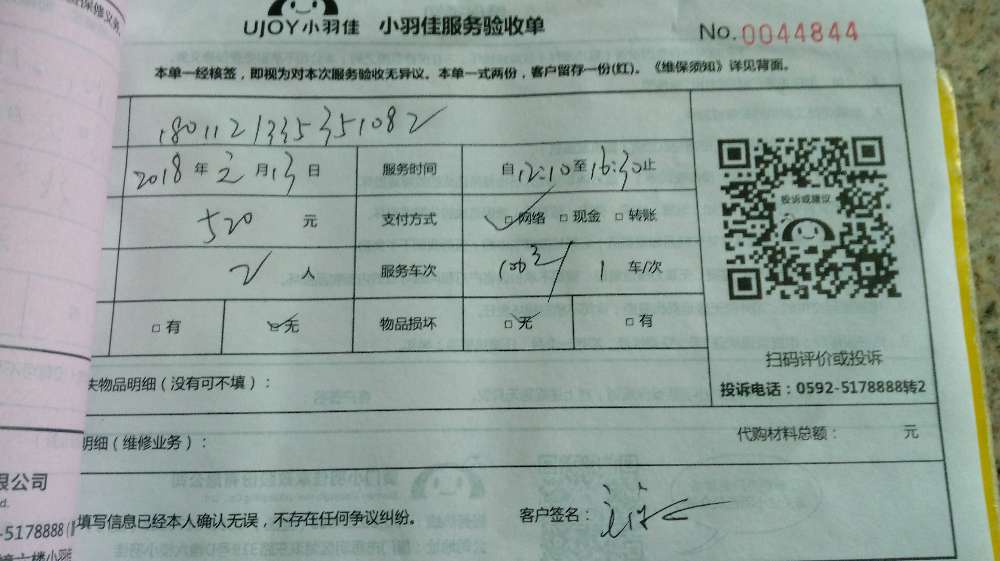 UJOY小羽佳 小羽佳服务验收单
No.0044844
本单一经核签，即视为对本次服务验收无异议。本单一式两份，客户留存一份(红)。《维保须知》详见背面。
180112133535351082
2018年元月13日 服务时间 自12:10至16:30止
520 元 支付方式 □网络 □现金 □转账
2 人 服务车次 1 车/次
□有 □无 物品损坏 □无 □有
投诉或建议
扫码评价或投诉
投诉电话：0592-5178888转2
失物品明细（没有可不填）：
明细（维修业务）：
代购材料总额： 元
填写信息已经本人确认无误，不存在任何争议纠纷。
客户签名：
限公司
-5178888
六楼小羽